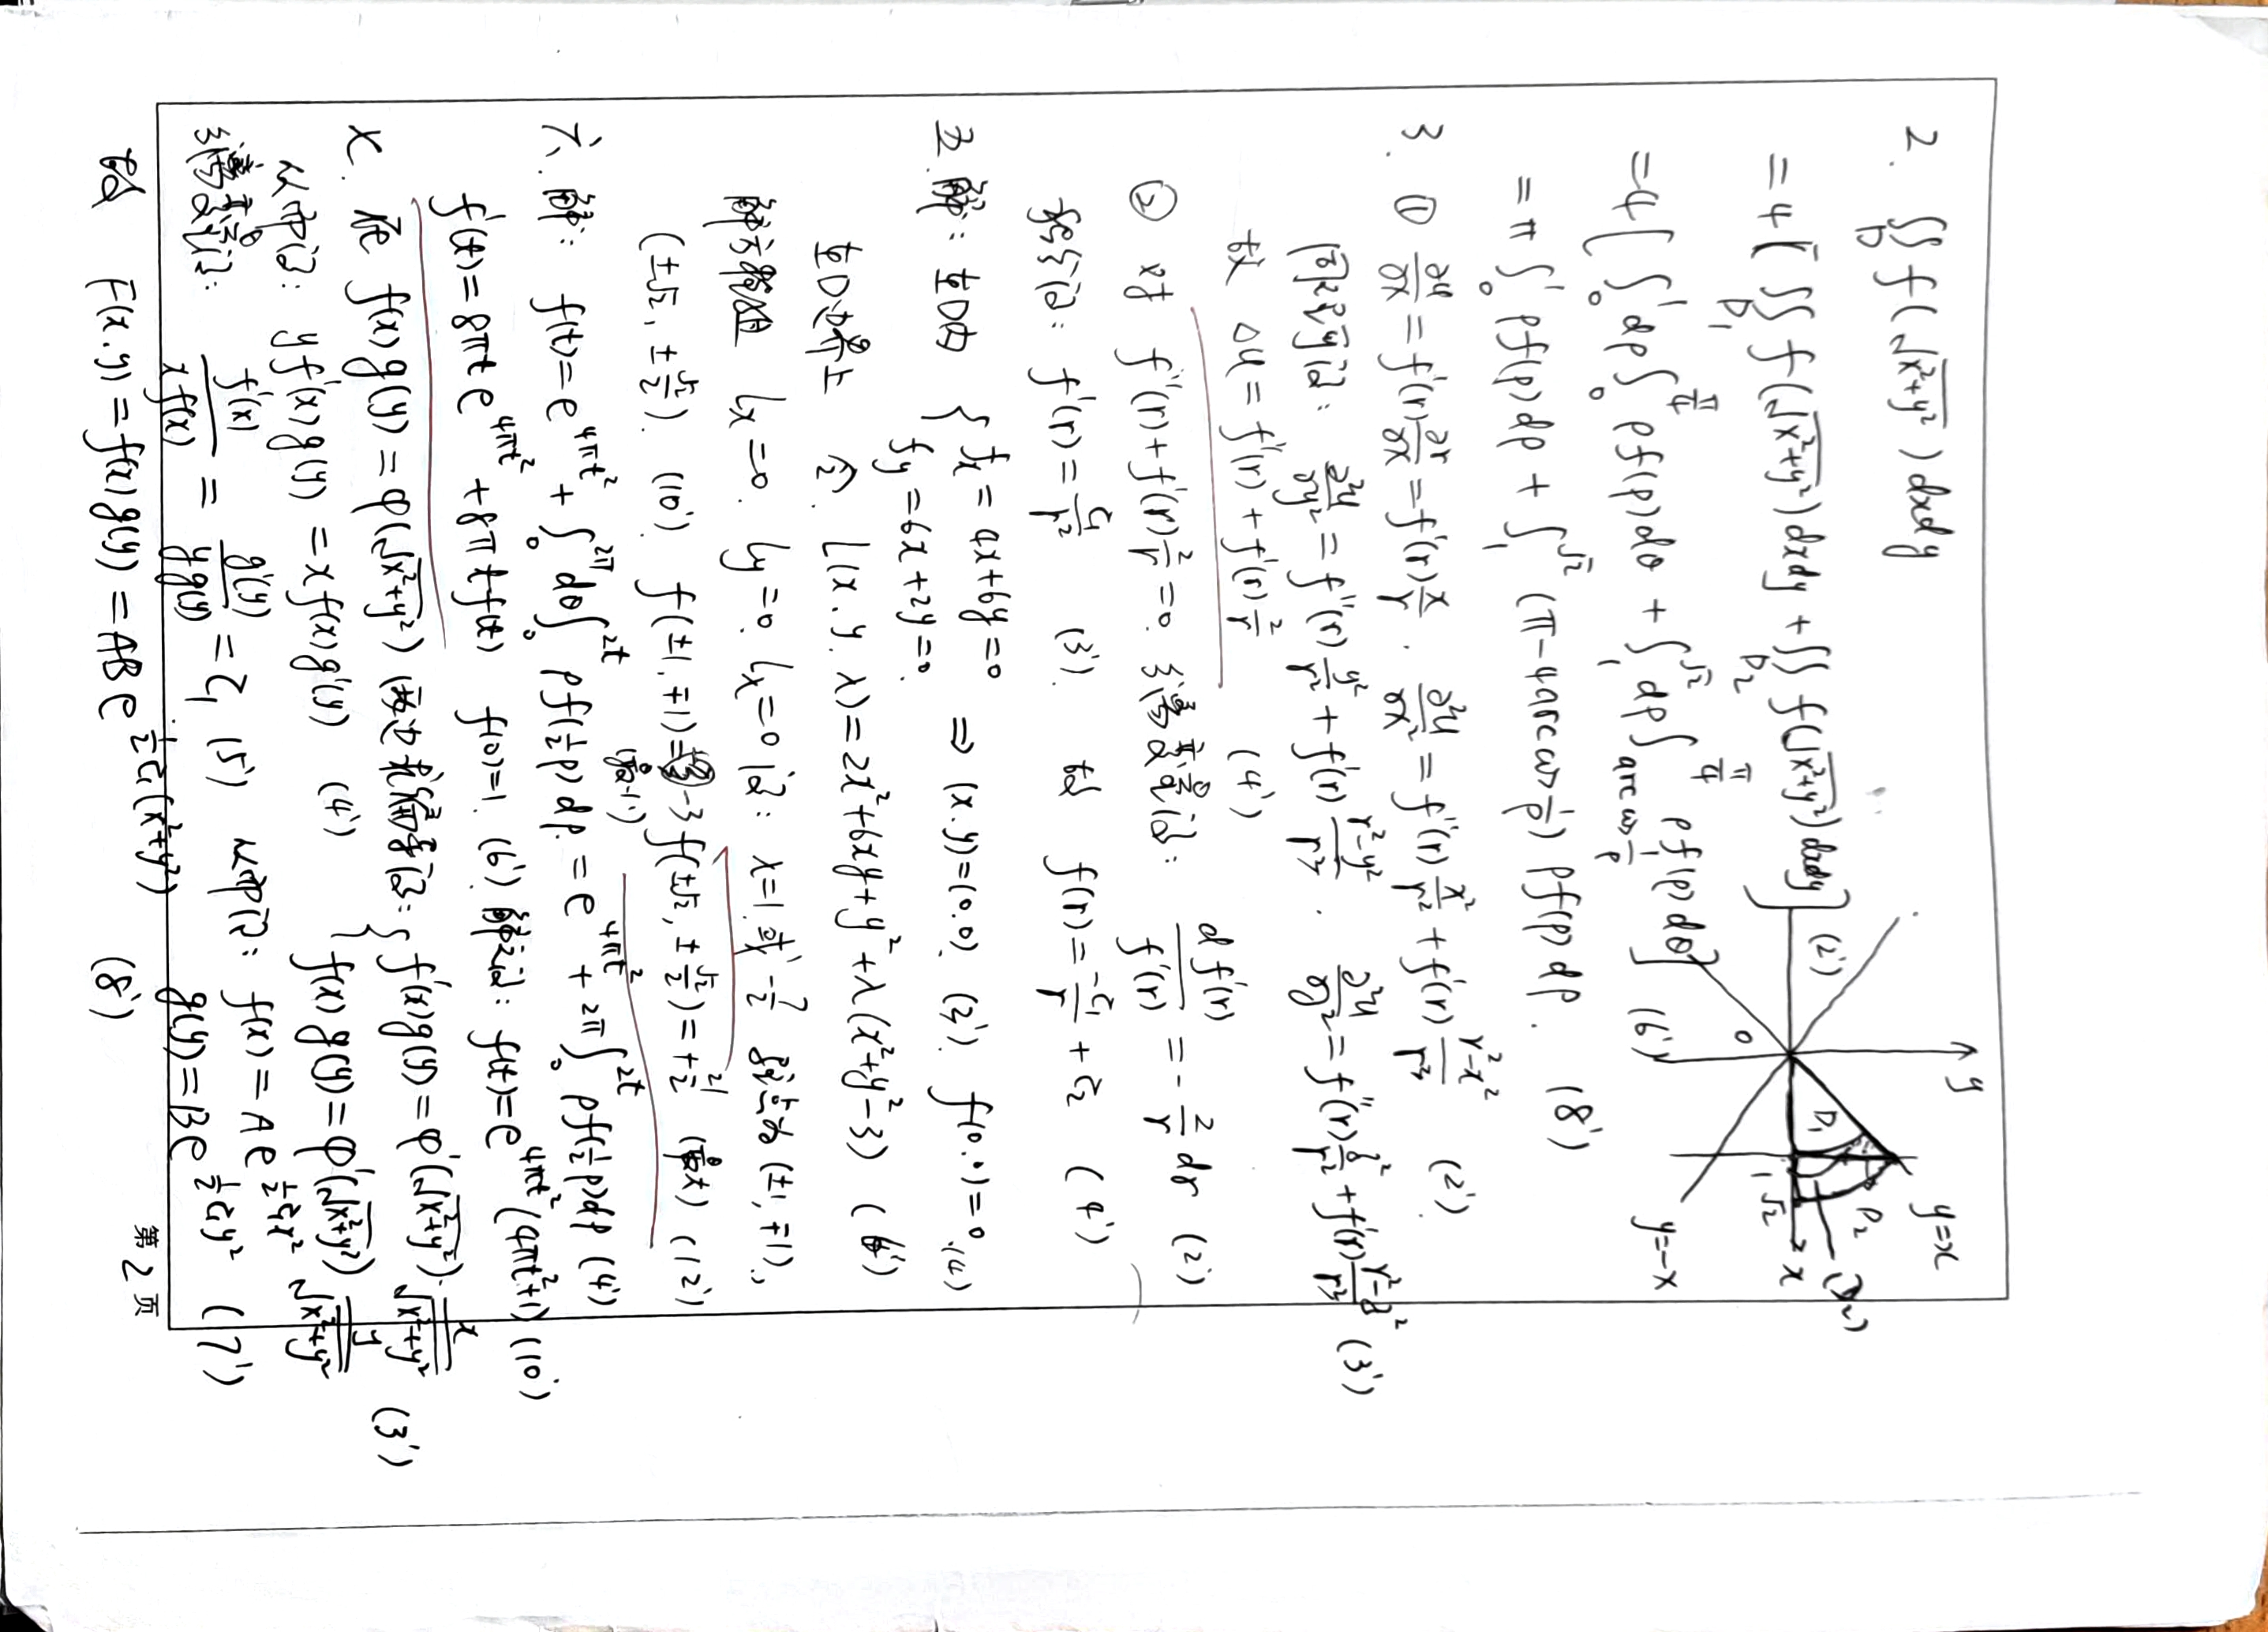 2. ∬_D f(√(x²+y²)) dxdy
= 4[∬_{D₁} f(√(x²+y²)) dxdy + ∬_{D₂} f(√(x²+y²)) dxdy] (2')
= 4[∫₀¹ dρ ∫₀^{π/4} ρf(ρ) dθ + ∫₁^{√2} dρ ∫_{arccos 1/ρ}^{π/4} ρf(ρ) dθ] (6')
= π ∫₀¹ ρf(ρ)dρ + ∫₁^{√2} (π-4arccos 1/ρ) ρf(ρ) dρ. (8')
y
y=x
D₁
D₂
(D₂)
0
1
√2
x
y=-x
3. ① ∂u/∂x = f'(r) ∂r/∂x = f'(r) x/r . ∂²u/∂x² = f''(r) x²/r² + f'(r) (r²-x²)/r³ (2').
同理可得: ∂²u/∂y² = f''(r) y²/r² + f'(r) (r²-y²)/r³ . ∂²u/∂z² = f''(r) z²/r² + f'(r) (r²-z²)/r³ (3')
故 Δu = f''(r) + f'(r) 2/r (4')
② 对 f''(r) + f'(r) 2/r = 0. 分离变量得: df'(r)/f'(r) = -2/r dr (2')
积分得: f'(r) = C₁/r² (3'). 故 f(r) = -C₁/r + C₂ (4')
五. 解: 在D内 { f_x = 4x+6y=0 f_y = 6x+2y=0. ⇒ (x.y)=(0.0) (2'). f(0.0)=0. (4')
在D边界上 令. L(x.y.λ) = 2x²+6xy+y²+λ(x²+y²-3) (6')
解方程组 L_x=0. L_y=0. L_λ=0 得: λ=1 或 -7/2 驻点为 (±1, ∓1),
(±√2, ±√2/2). (10'). f(±1, ∓1) = -3 f(±√2, ±√2/2) = 21/2 (最大) (12')
(最小)
六. 解: f(t) = e^{4πt²} + ∫₀^{2π} dθ ∫₀^{2t} ρf(½ρ) dρ. = e^{4πt²} + 2π ∫₀^{2t} ρf(½ρ)dρ (4')
f'(t) = 8πt e^{4πt²} + 8πt f(t) f(0)=1. (6') 解之得: f(t) = e^{4πt²} (4πt²+1) (10')
七. 在 f(x)g(y) = φ(√(x²+y²)) 两边求偏导得: { f'(x)g(y) = φ'(√(x²+y²))· x/√(x²+y²) f(x)g'(y) = φ'(√(x²+y²)) y/√(x²+y²) (3')
从而: yf'(x)g(y) = xf(x)g'(y) (4')
分离变量得: f'(x)/(xf(x)) = g'(y)/(yg(y)) = C₁ (5') 从而: f(x) = Ae^{½C₁x²} g(y) = Be^{½C₁y²} (7')
故 F(x.y) = f(x)g(y) = ABe^{½C₁(x²+y²)} (8')
第 2 页